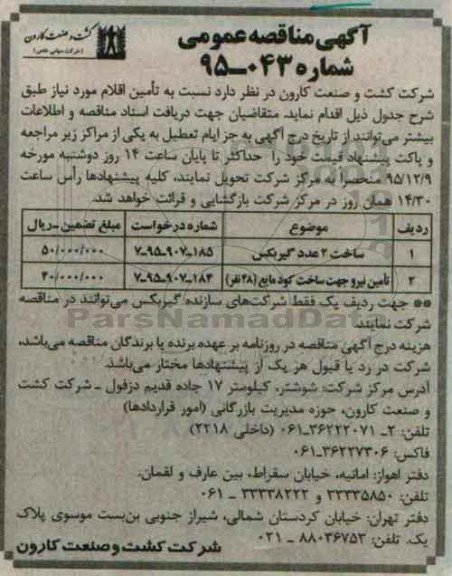 آگهی مناقصه عمومی
شماره ۰۴۳-۹۵
کشت و صنعت کارون
(شرکت سهامی خاص)
شرکت کشت و صنعت کارون در نظر دارد نسبت به تأمین اقلام مورد نیاز طبق
شرح جدول ذیل اقدام نماید. متقاضیان جهت دریافت اسناد مناقصه و اطلاعات
بیشتر می‌توانند از تاریخ درج آگهی به جز ایام تعطیل به یکی از مراکز زیر مراجعه
و پاکت پیشنهاد قیمت خود را حداکثر تا پایان ساعت ۱۴ روز دوشنبه مورخه
۹۵/۱۲/۹ منحصراً به مرکز شرکت تحویل نمایند، کلیه پیشنهادها رأس ساعت
۱۴/۳۰ همان روز در مرکز شرکت بازگشایی و قرائت خواهد شد.
ردیف موضوع شماره درخواست مبلغ تضمین-ریال
۱ ساخت ۲ عدد گیربکس ۱۸۵-۹۰۷-۹۵-۷ ۵۰/۰۰۰/۰۰۰
۲ تأمین نیرو جهت ساخت کود مایع (۲۸ نفر) ۱۸۳-۹۰۷-۹۵-۷ ۲۰/۰۰۰/۰۰۰
** جهت ردیف یک فقط شرکت‌های سازنده گیربکس می‌توانند در مناقصه
شرکت نمایند.
ParsNamadData
هزینه درج آگهی مناقصه در روزنامه بر عهده برنده یا برندگان مناقصه می‌باشد،
شرکت در رد یا قبول هر یک از پیشنهادها مختار می‌باشد.
آدرس مرکز شرکت: شوشتر، کیلومتر ۱۷ جاده قدیم دزفول - شرکت کشت
و صنعت کارون، حوزه مدیریت بازرگانی (امور قراردادها)
تلفن: ۲-۳۶۲۲۲۰۷۱-۰۶۱ (داخلی ۲۲۱۸)
فاکس: ۳۶۲۲۷۳۰۶-۰۶۱
دفتر اهواز: امانیه، خیابان سقراط، بین عارف و لقمان.
تلفن: ۳۳۳۳۵۸۵۰ و ۳۳۳۳۸۲۲۲ - ۰۶۱
دفتر تهران: خیابان کردستان شمالی، شیراز جنوبی بن‌بست موسوی پلاک
یک. تلفن: ۸۸۰۳۶۷۵۳ - ۰۲۱
شرکت کشت و صنعت کارون